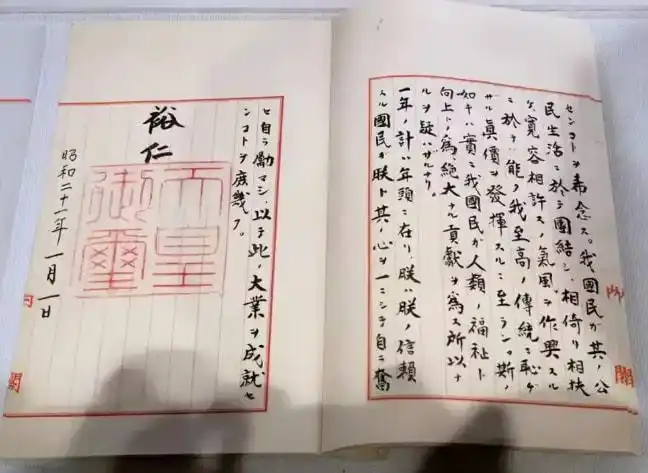 センコトヲ希念ス。我國民ガ其ノ公
民生活ニ於テ團結シ、相倚リ相扶
ケ、寛容相許スノ氣風ヲ作興スル
ニ於テハ、能ク我至高ノ傳統ニ恥ヂ
ザル眞價ヲ發揮スルニ至ラン。斯ノ
如キハ實ニ我國民ガ人類ノ福祉ト
向上トノ為、絶大ナル貢獻ヲ為ス所以ナ
ルヲ疑ハザルナリ。
一年ノ計ハ年頭ニ在リ、朕ハ朕ノ信頼
スル國民ガ朕ト其ノ心ヲ一ニシテ自ラ奮
ヒ自ラ勵マシ、以テ此ノ大業ヲ成就セ
ンコトヲ庶幾フ。
裕仁
天皇
御璽
昭和二十一年一月一日
閣
閣